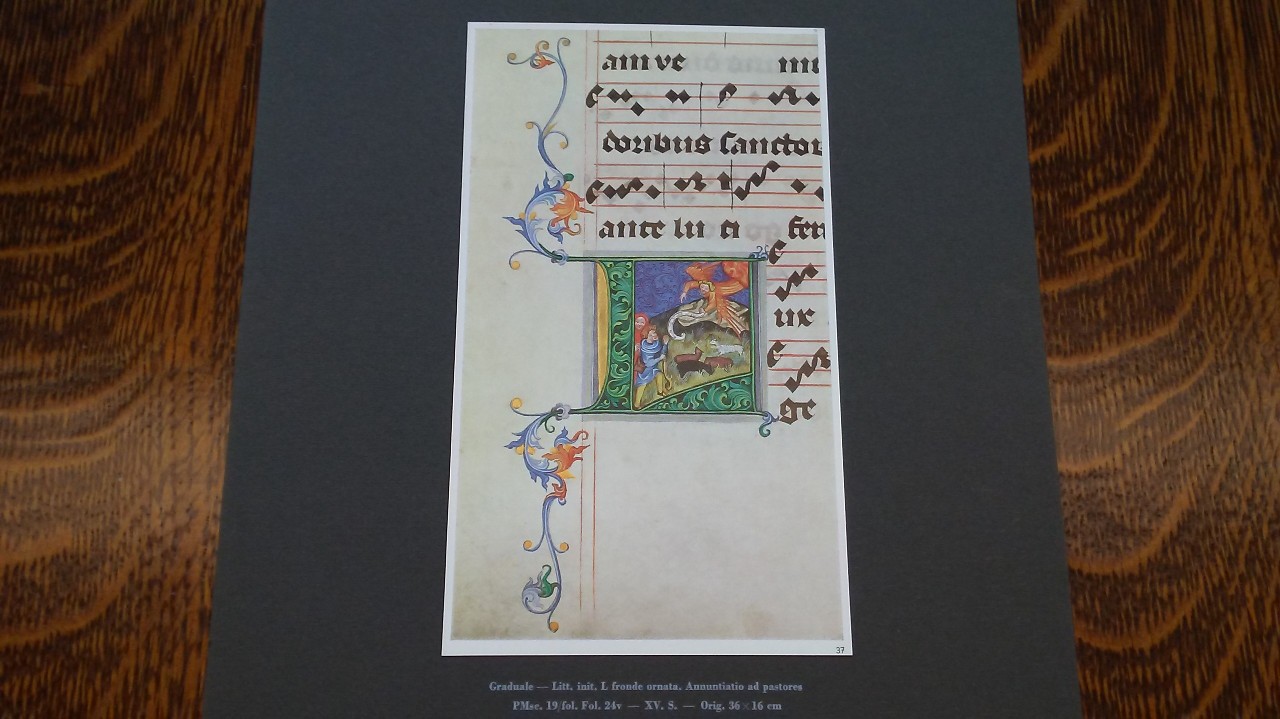 am ve
doribus sanctor
ante lu ci fer
L
ux
ge
37
Graduale — Litt. init. L fronde ornata. Annuntiatio ad pastores
PMsc. 19/fol. Fol. 24v — XV. S. — Orig. 36 × 16 cm